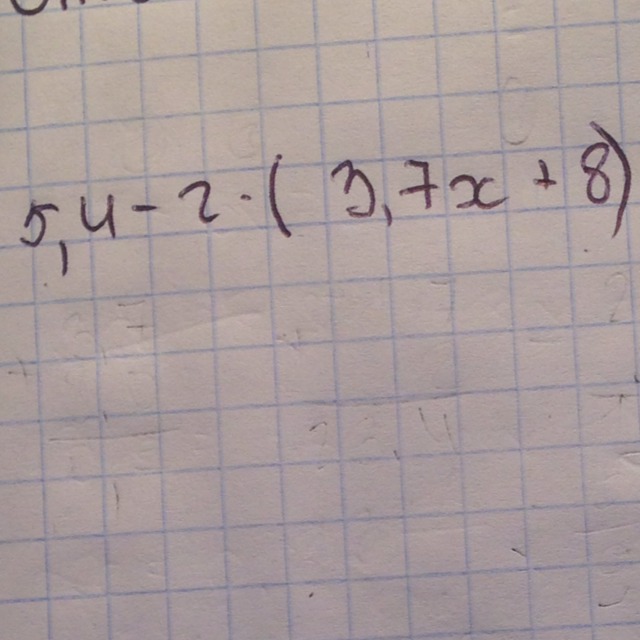 5,4 - 2 · ( 3,7x + 8)